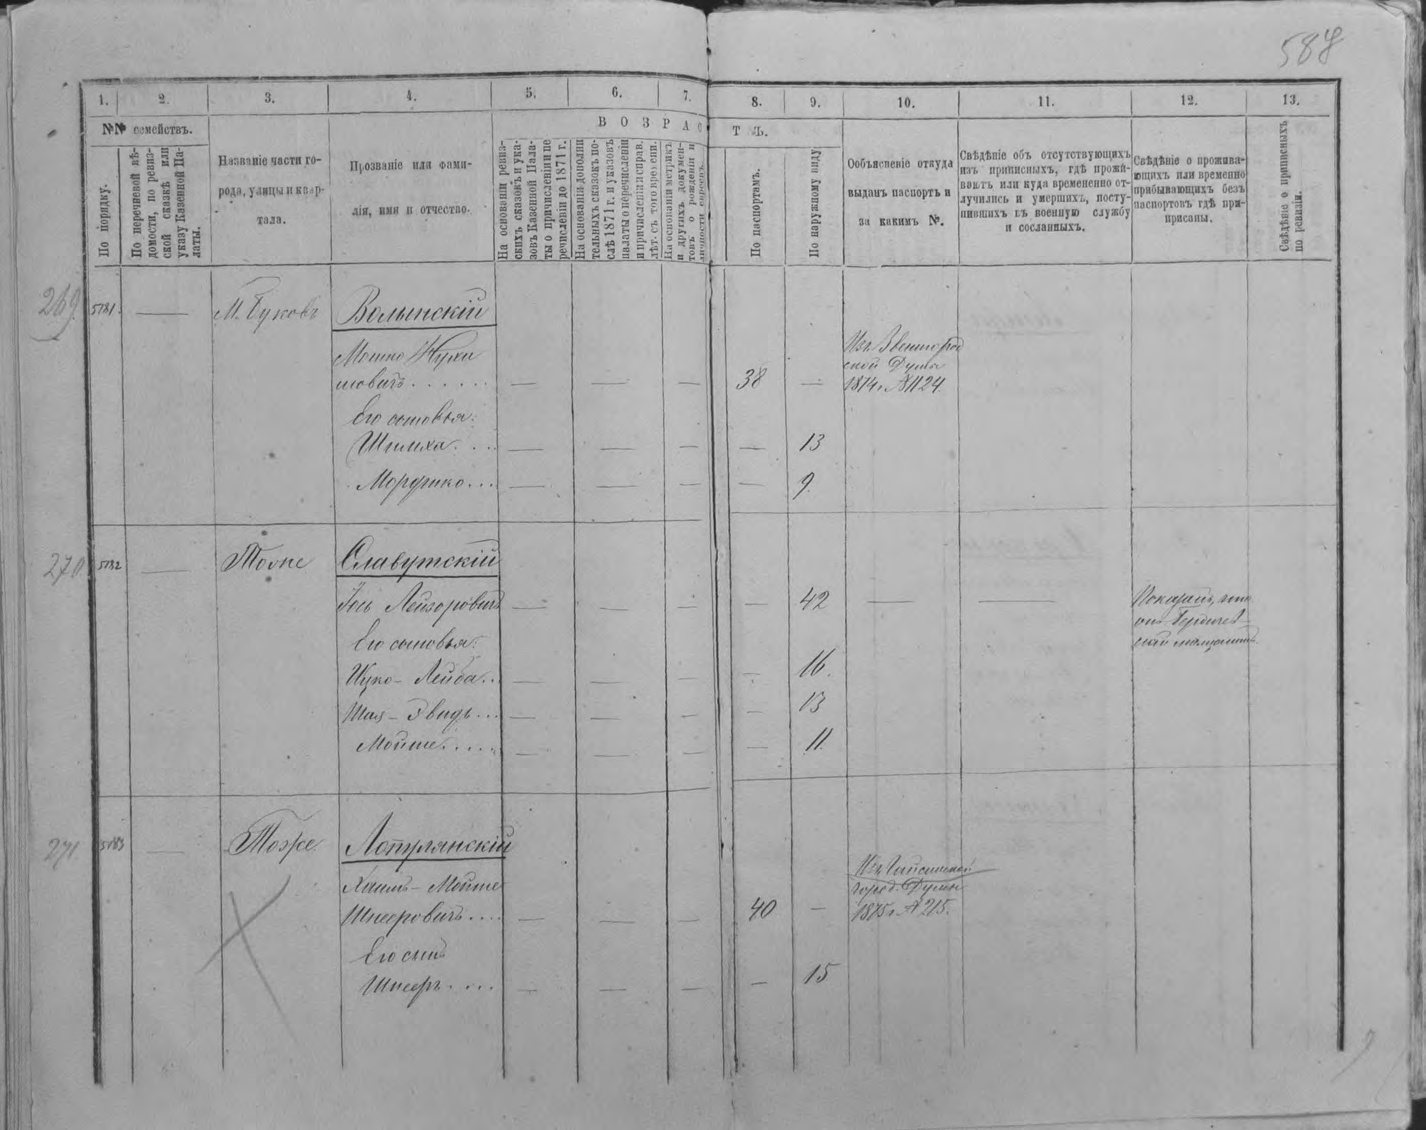 587
1. 2. 3. 4. 5. 6. 7. 8. 9. 10. 11. 12. 13.
№№ семействъ.
По порядку.
По перечневой вѣ-
домости, по ревиз-
ской сказкѣ или
указу Казенной Па-
латы.
Названіе части го-
рода, улицы и квар-
тала.
Прозваніе или фами-
лія, имя и отчество.
ВОЗРАСТЪ.
На основаніи ревиз-
скихъ сказокъ и ука-
зовъ Казеной Пала-
ты о причисленіи и пе
речисленіи до 1871 г.
На основаніи дополни
тельныхъ сказокъ по-
слѣ 1871 г. и указовъ
палаты о перечисленіи
и причисленіи и справ.
лѣт. съ того времени.
На основаніи метрикъ
и другихъ докумен-
товъ о рожденіи и
личности евреевъ.
По паспортамъ.
По наружному виду
Ообъясненіе откуда
выданъ паспортъ и
за какимъ №.
Свѣдѣніе объ отсутствующихъ
изъ приписныхъ, гдѣ прожи-
ваютъ или куда временено от-
лучились и умершихъ, посту-
пившихъ въ военную службу
и сосланныхъ.
Свѣдѣніе о прожива-
ющихъ или временно
прибывающихъ безъ
паспортовъ гдѣ при-
приписаны.
Свѣдѣніе о приписныхъ
по ревизіи.
269. 5781. — М. Буковъ Волынскій
Мошко Нухи
мовичъ — — — 38 — Изъ Звенигород
ской Думы
1874 г. № 1124
Его сыновья:
Шлиха — — — — 13
Мордшко — — — — 9.
270 5782 — Тоже Славутскій
Іось Лейзоровичъ — — — — 42 — — Показалъ, что
онъ Бердичев-
скій мещанинъ
Его сыновья:
Ицко-Лейба — — — — 16.
Шая-Звидь — — — — 13
Мойше — — — — 11.
271 5783 — Тоже Лопулянскій
Хаимъ-Мойше
Шнееровичъ — — — 40 — Изъ Гайсинской
город. Думы
1875 г. № 215.
Его сынъ
Шнееръ — — — — 15